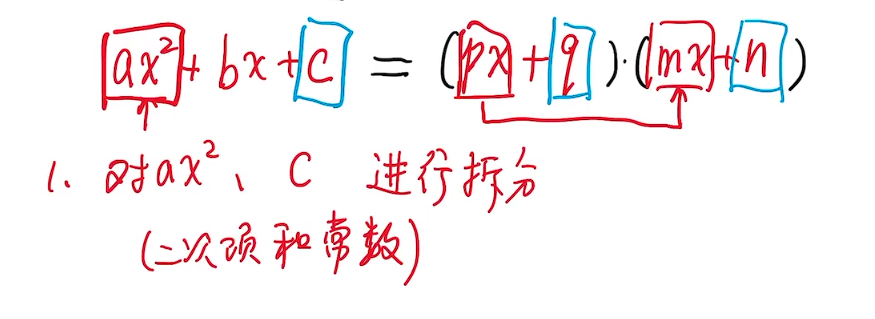 ax²+bx+c=(px+q)·(mx+n)
1、对ax²、c 进行拆分
(二次项和常数)